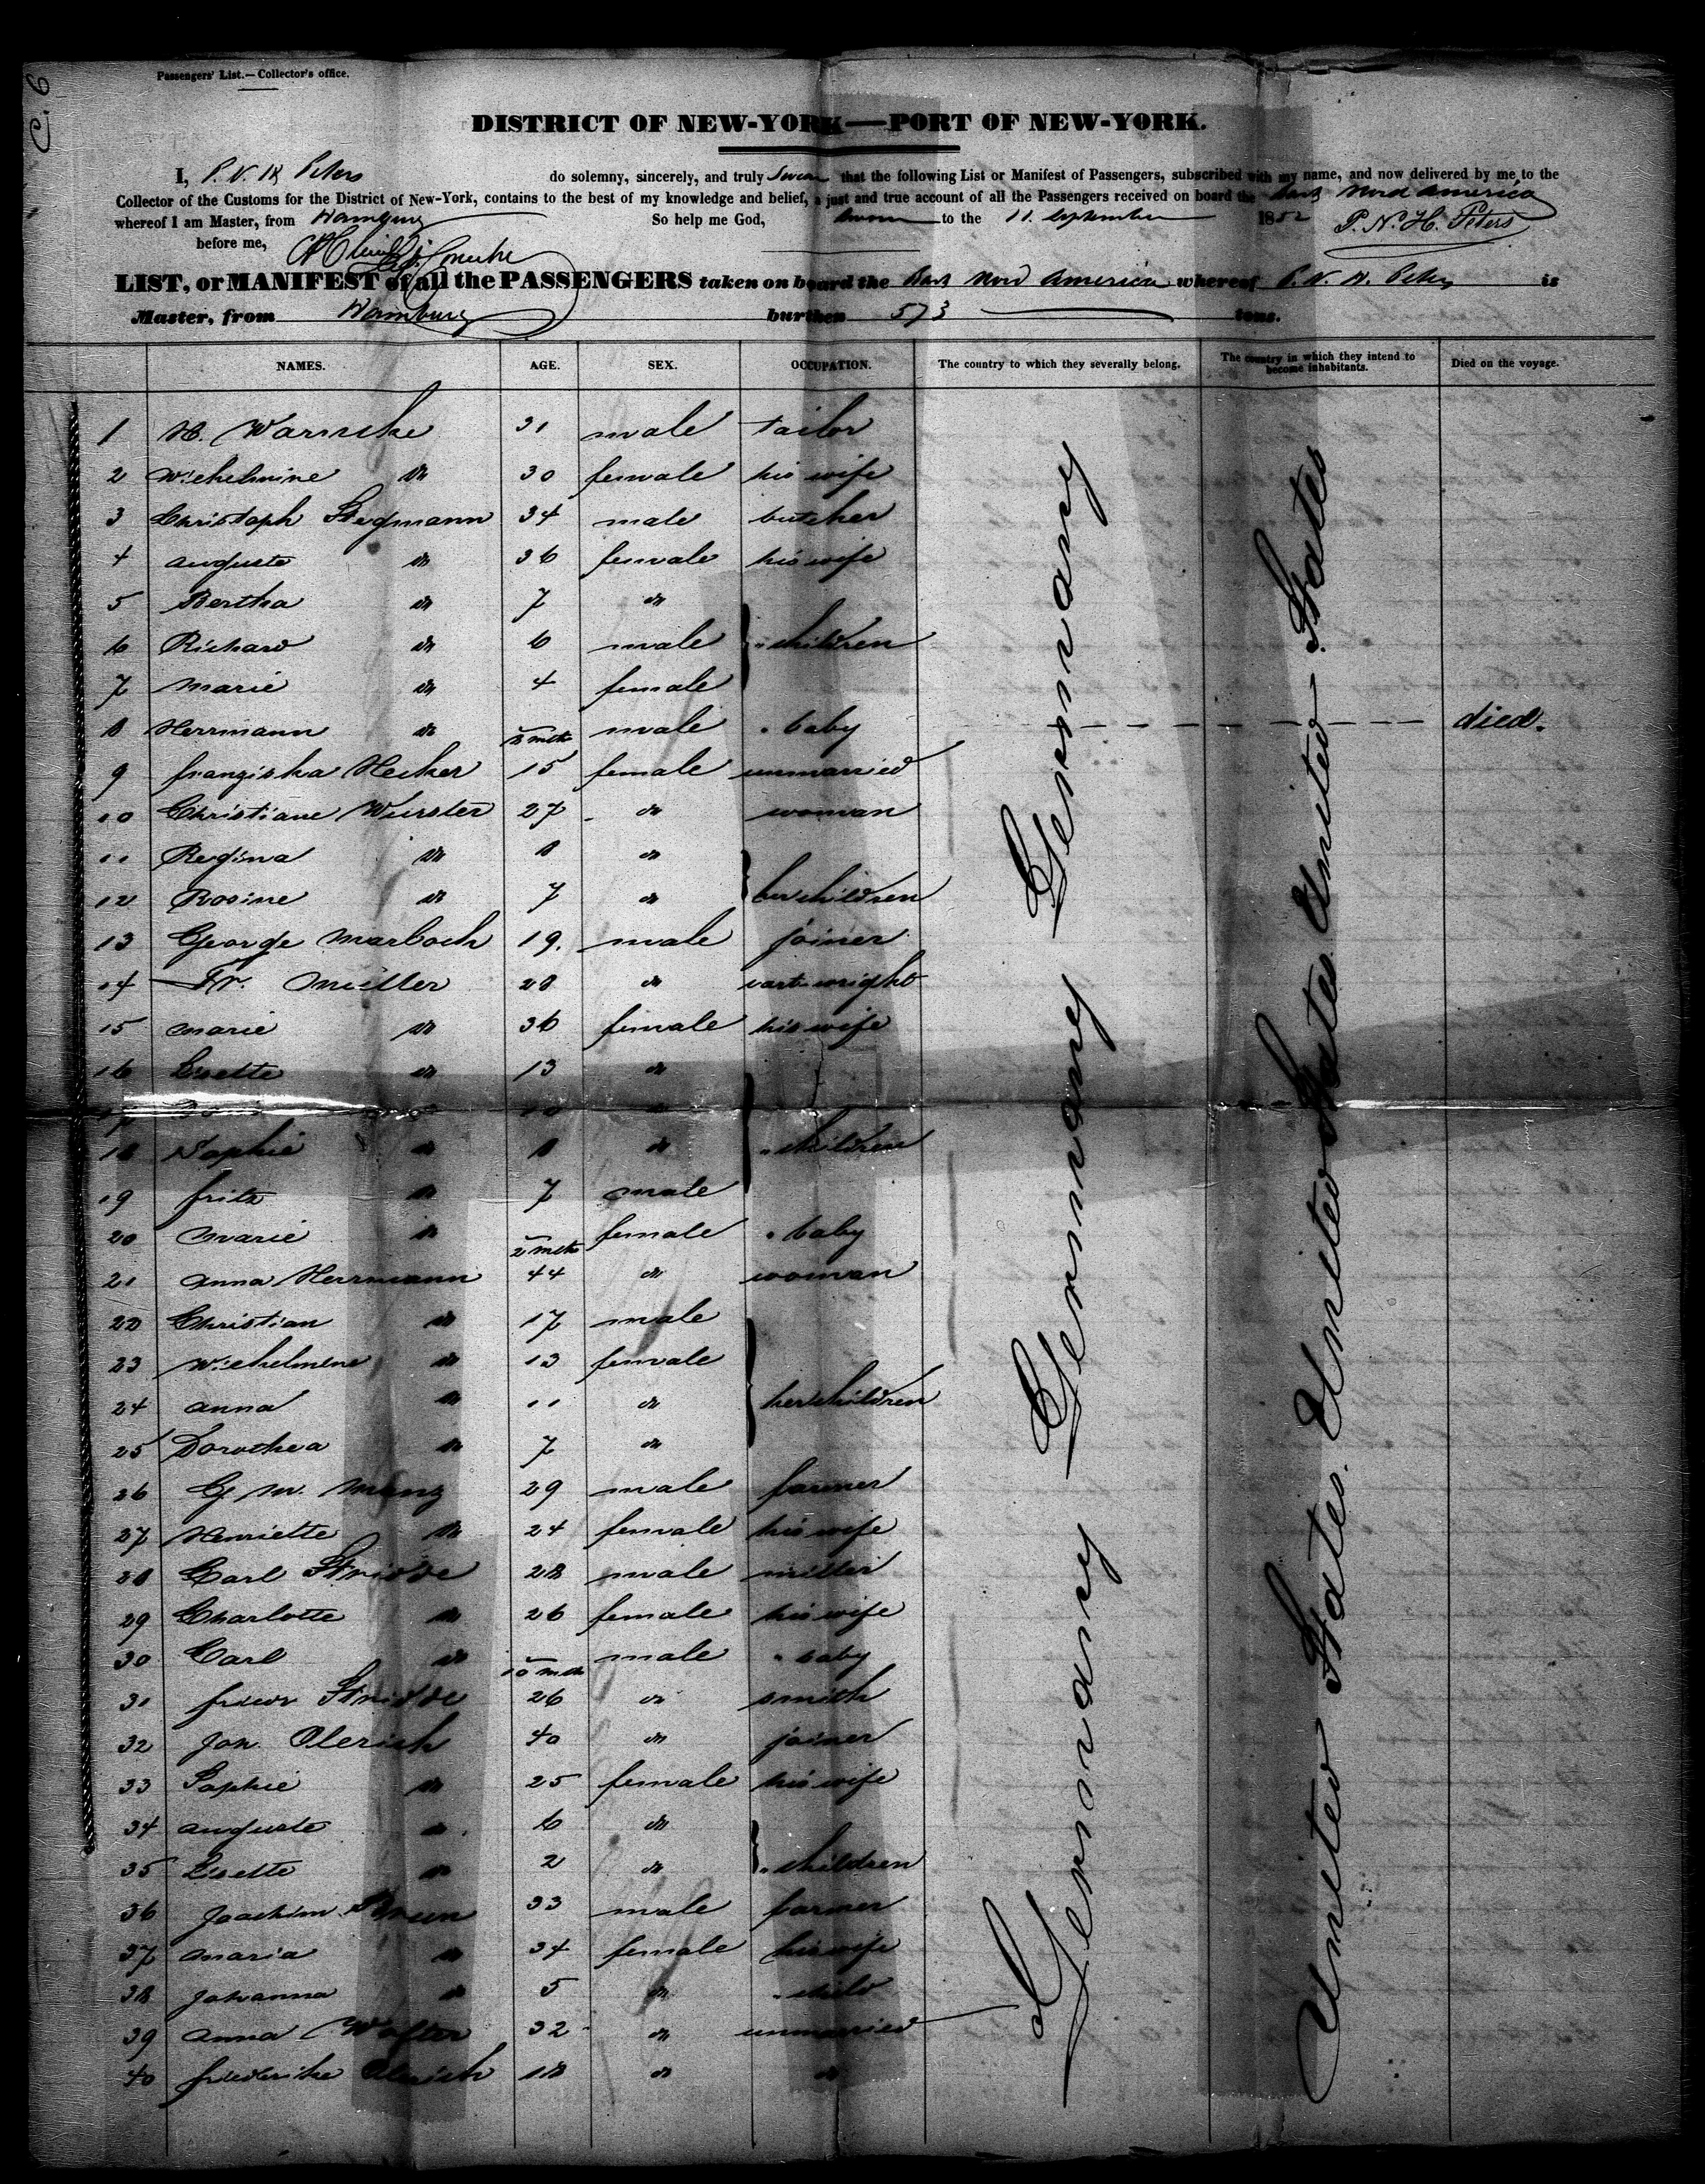 C. 6
Passengers' List.—Collector's office.
DISTRICT OF NEW-YORK—PORT OF NEW-YORK.
I, P. N. H. Peters do solemny, sincerely, and truly swear that the following List or Manifest of Passengers, subscribed with my name, and now delivered by me to the
Collector of the Customs for the District of New-York, contains to the best of my knowledge and belief, a just and true account of all the Passengers received on board the Bark Nord America
whereof I am Master, from Hamburg So help me God, sworn to the 11. September 1852 P. N. H. Peters
before me,
LIST, or MANIFEST of all the PASSENGERS taken on board the Bark Nord America whereof P. N. H. Peters is
Master, from Hamburg burthen 573 tons.
NAMES. AGE. SEX. OCCUPATION. The country to which they severally belong. The country in which they intend to become inhabitants. Died on the voyage.
1 H. Warncke 31 male tailor
2 Wilhelmine do 30 female his wife
3 Christoph Stegmann 34 male butcher
4 Auguste do 36 female his wife
5 Bertha do 7 do
6 Richard do 6 male " children
7 Marie do 4 female
8 Herrmann do 8 mth male " baby died.
9 Franziska Hecker 15 female unmarried
10 Christiane Wurster 27 do woman
11 Regina do 8 do
12 Rosine do 7 do her children
13 George Marbach 19. male joiner
14 Fr. Müller 28 do cartwright
15 Marie do 36 female his wife
16 Lisette do 13 do
17 10 do
18 Sophie do 8 do " children
19 Fritz do 7 male
20 Marie do 2 mth female " baby
21 Anna Herrmann 44 do woman
22 Christian do 17 male
23 Wilhelmine do 13 female
24 Anna do 11 do her children
25 Dorothea do 7 do
26 G. W. Menz 29 male farmer
27 Henriette do 24 female his wife
28 Carl Stridde 28 male miller
29 Charlotte do 26 female his wife
30 Carl do 10 mth male " baby
31 Friedr Stridde 26 do smith
32 Joh. Olerich 40 do joiner
33 Sophie do 25 female his wife
34 Auguste do 6 do
35 Lisette do 2 do " children
36 Joachim 33 male farmer
37 Maria do 34 female his wife
38 Johanna do 5 do " child
39 Anna Wolter 32 do unmarried
40 Friederike Olerich 18 do do
Germany Germany Germany Germany
United States. United States. United States. United States